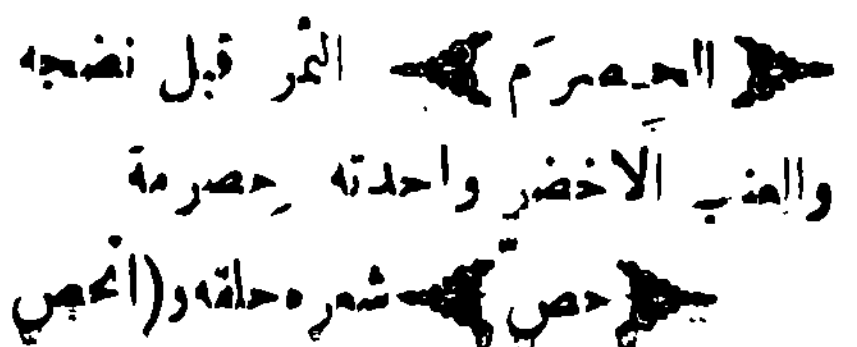 ﴿الحِصرَم﴾ الثمر قبل نضجه
والعنب الاخضر واحدته حِصرمة
﴿حصّ﴾ شعره حلقه و(انْحصّ